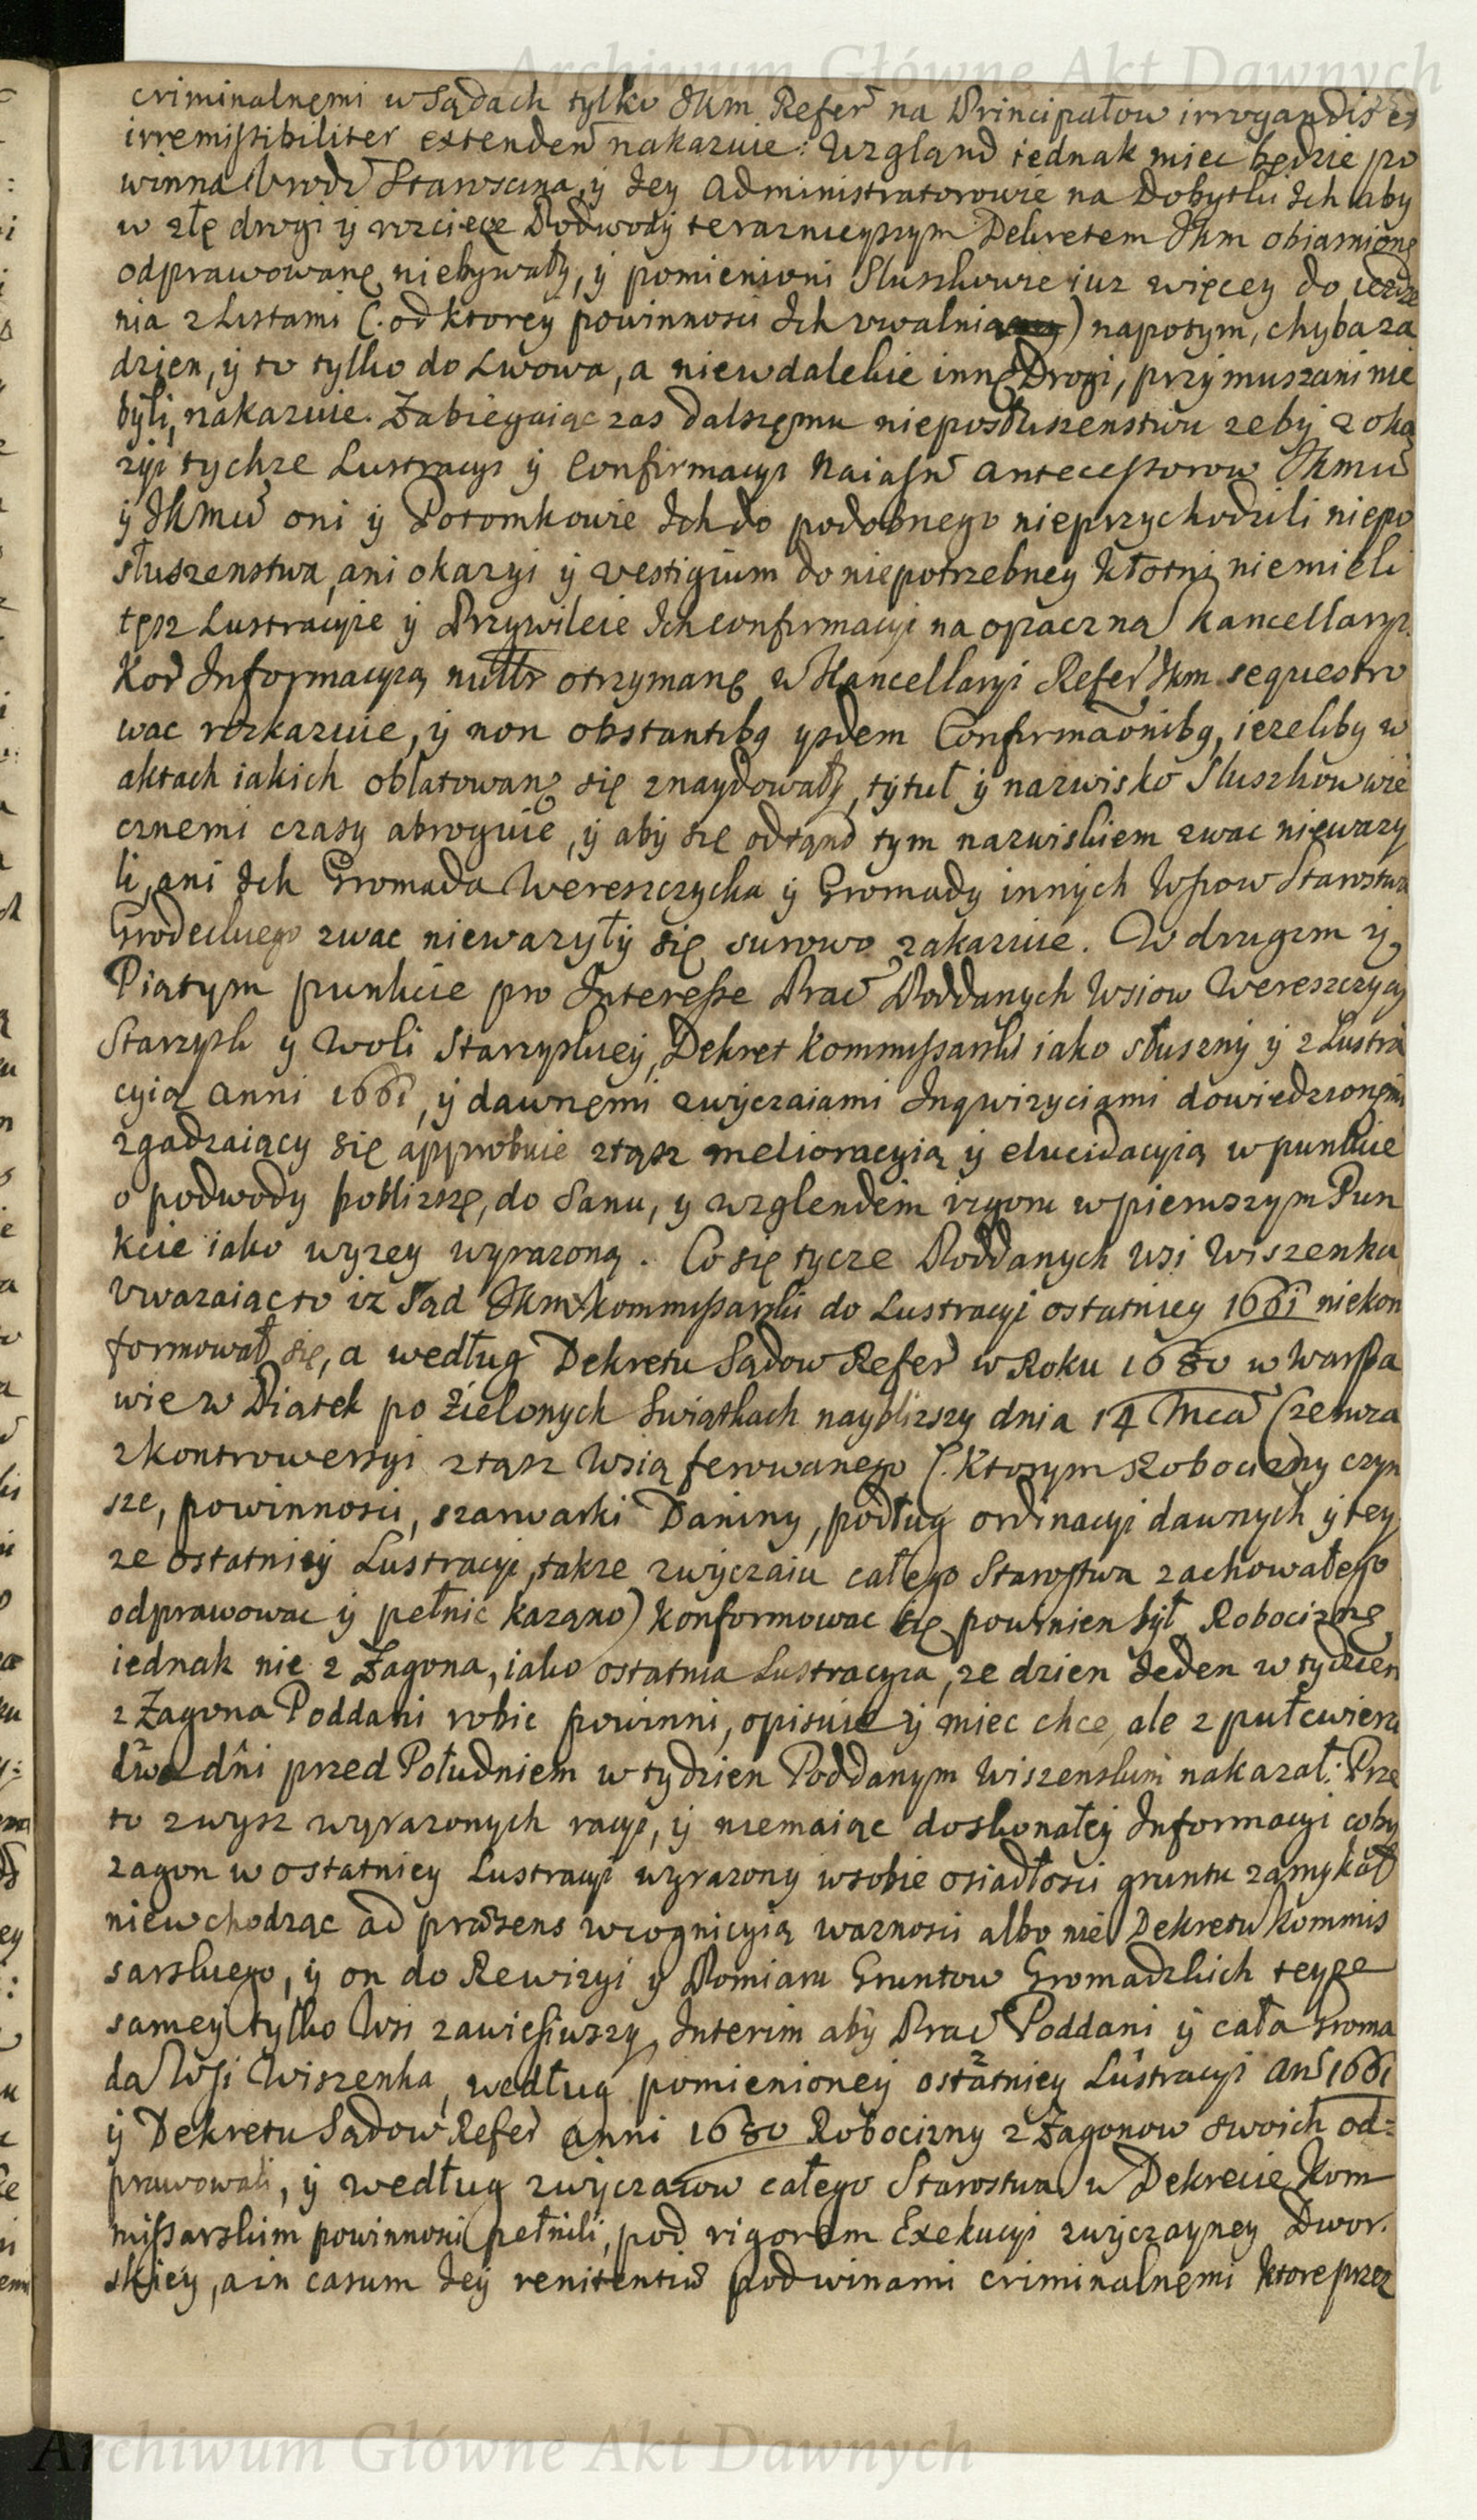 Archiwum Główne Akt Dawnych
criminalnęmi w Sądach tylko Jkm Refer na Principałow irrogandis et
irremissibiliter extenden nakazuie: Wzgland iednak miec będzie po
winna Urodz Starscina, ÿ Jey Administratorowie na Dobytki Ich aby
w złę drogi ÿ rozcięcze Podwody teraznieyszym Dekretem Jkm obiasnionę
odprawowanę niebywały, ÿ pomienioni Sluszkowie iuz więcey do iezdze
nia z Listami (: od ktorey powinnosci Ich uwalnia) napotym, chyba za
dzien, ÿ to tylko do Lwowa, a niewdalekie innę Drogi, przymuszani nie
byli, nakazuie. Zabiegaiąc zas dalszęmu nieposłuszenstwu zeby z oka
zyi tychze Lustracyi ÿ Confirmacyi Naiasn Antecessorow Jkmci
ÿ Jkmci oni ÿ Potomkowie Ich do podobnego nieprzychodzili niepo
słuszenstwa, ani okazyi ÿ vestigium do niepotrzebney Kłotni niemieli
tęsz Lustracyie ÿ Przywileie Ich confirmacyi na opaczną Kancellaryi
Kor Informacyią otrzymanę w Kancellaryi Refer Jkm sequestro
wac rozkazuie, ÿ non obstantibq ysdem Confirmaonibq, iezeliby w
aktach iakich oblatowanę się znaydowały, tytuł ÿ nazwisko Sluszkow wie
cznemi czasy abroguie, ÿ aby się odtąnd tym nazwiskiem zwac niewazy
li, ani Ich Gromada Wereszczycka ÿ Gromady innych Wsiow Starostwa
Grodeckiego zwac niewazyły się surowo zakazuie. W drugim ÿ
Piątym punkcie pro Interesse Prac Poddanych Wsiow Wereszczycy
Starzysk ÿ Woli Starzyskiey, Dekret Kommissarski iako słuszny ÿ z Lustra
cyią Anni 1661, ÿ dawnęmi zwyczaiami Inqwizyciami dowiedzionęmi
zgadzaiący się approbuie ztąsz melioracyią ÿ elucidacyią w punkcie
o podwody poblizszę, do Sanu, y wzglendem rigoru w pierwszym Pun
kcie iako wyzey wyrazoną. Co się tycze Poddanych Wsi Wiszenka
Uwazaiąc to iz Sąd Jkm Kommissarski do Lustracyi ostatniey 1661 niekon
formował się, a według Dekretu Sądow Refer w Roku 1680 w Warsza
wie w Piatek po Zielonych Swiątkach nayblizszy dnia 14 Mca Czerwca
z kontrowersyi ztąsz Wsią ferowanego (: Ktorym Robocizny czyn
sze, powinnosci, szarwarki Daniny, podług ordinacyi dawnych ÿ tey
ze ostatniey Lustracyi, takze zwyczaiu całego Starostwa zachowałego
odprawowac ÿ pełnic kazano) Konformowac się powinien był Robociznę
iednak nie z Zagona, iako ostatnia Lustracyia, ze dzien Jeden w tydzien
z Zagona Poddani robic powinni, opisuie ÿ miec chce, ale z pułcwierci
dwa dni przed Południem w tydzien Poddanym Wiszenskim nakazał: Prze
to zwysz wyrazonych racyi, ÿ niemaiąc doskonałey Informacyi coby
zagon w ostatniey Lustracyi wyrazony w sobie osiadłosci gruntu zamykał
niewchodząc ad præsens w cognicyią waznosci albo nie Dekretu Kommis
sarskiego, ÿ on do Rewizyi ÿ Pomiaru Gruntow Gromadzkich teyze
samey tylko Wsi zawiesiwszy, Interim aby Prac Poddani ÿ cała Groma
da Wsi Wiszenka, według pomienioney ostatniey Lustracyi An 1661
ÿ Dekretu Sądow Refer Anni 1680 Robocizny z Zagonow swoich od=
prawowali, ÿ według zwyczaiow całego Starostwa w Dekrecie Kom
missarskim powinnosci pełnili, pod rigorem Exekucyi zwyczayney Dwor.
skiey, a in casum Jey renitentiæ pod winami criminalnęmi ktore przez
Archiwum Główne Akt Dawnych